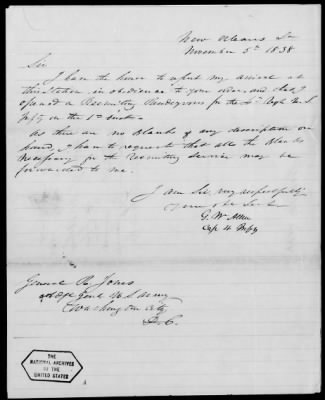 New Orleans La
November 5th 1838
Sir
I have the honor to report my arrival at
this Station in obedience to your order, and that I
opened a Recruiting Rendezvous for the 4th Regt U.S.
Infy on the 1st Inst.
As there are no Blanks of any description on
hand, I have to request that all the Blanks
Necessary for the Recruiting Service may be
forwarded to me.
I am Sir, very respectfully
Your obt Sert
G. W. Allen
Cap 4 Infy
General R. Jones
Genl U.S. Army
Washington City
D.C.
THE
NATIONAL ARCHIVES
OF THE
UNITED STATES